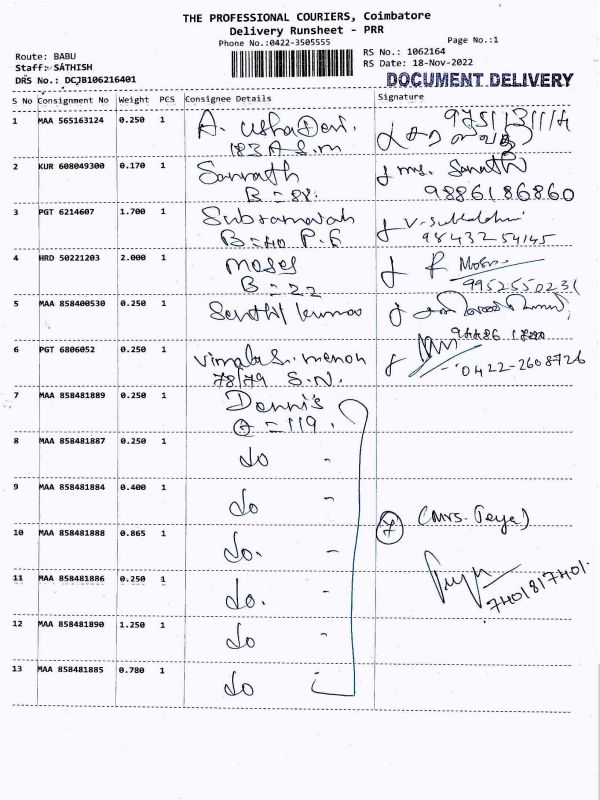 THE PROFESSIONAL COURIERS, Coimbatore
Delivery Runsheet - PRR
Phone No.:0422-3505555
Page No.:1
Route: BABU
RS No.: 1062164
Staff: SATHISH
RS Date: 18-Nov-2022
DRS No.: DCJB106216401
DOCUMENT DELIVERY
S No Consignment No Weight PCS Consignee Details Signature
1 MAA 565163124 0.250 1 A. Usha Devi.
183 A S.m
2 KUR 608049300 0.170 1 Sanrath
B = 88.
9886186860
3 PGT 6214607 1.700 1 Subramaniah
B = 40 P.E
9843254145
4 HRD 50221203 2.000 1 moses
B = 22
9952550231
5 MAA 858400530 0.250 1 Senthil kumar
6 PGT 6806052 0.250 1 Vimala S. menon
78/79 S.N.
0422-2608726
7 MAA 858481889 0.250 1 Dennis
A = 119.
8 MAA 858481887 0.250 1 do -
9 MAA 858481884 0.400 1 do -
7 (Mrs. Jeya)
10 MAA 858481888 0.865 1 do. -
11 MAA 858481886 0.250 1 do. -
7401817401.
12 MAA 858481890 1.250 1 do -
13 MAA 858481885 0.780 1 do